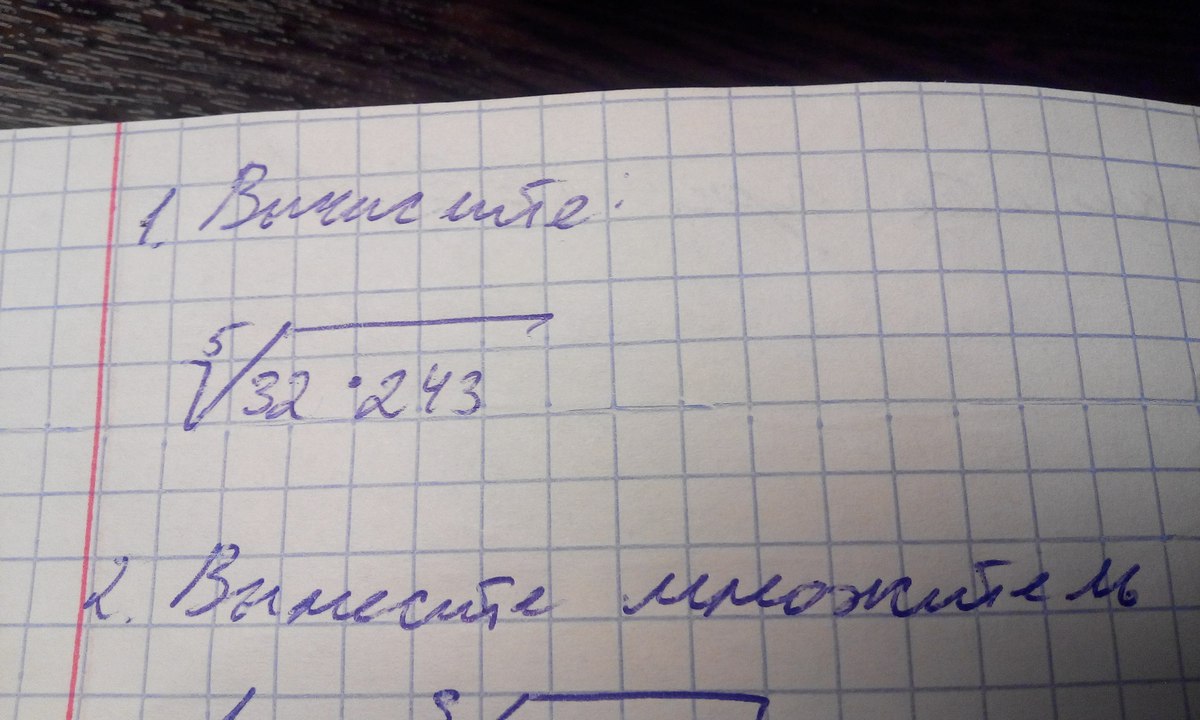 1. Вычислите:
⁵√32 · 243
2. Вынесите множитель